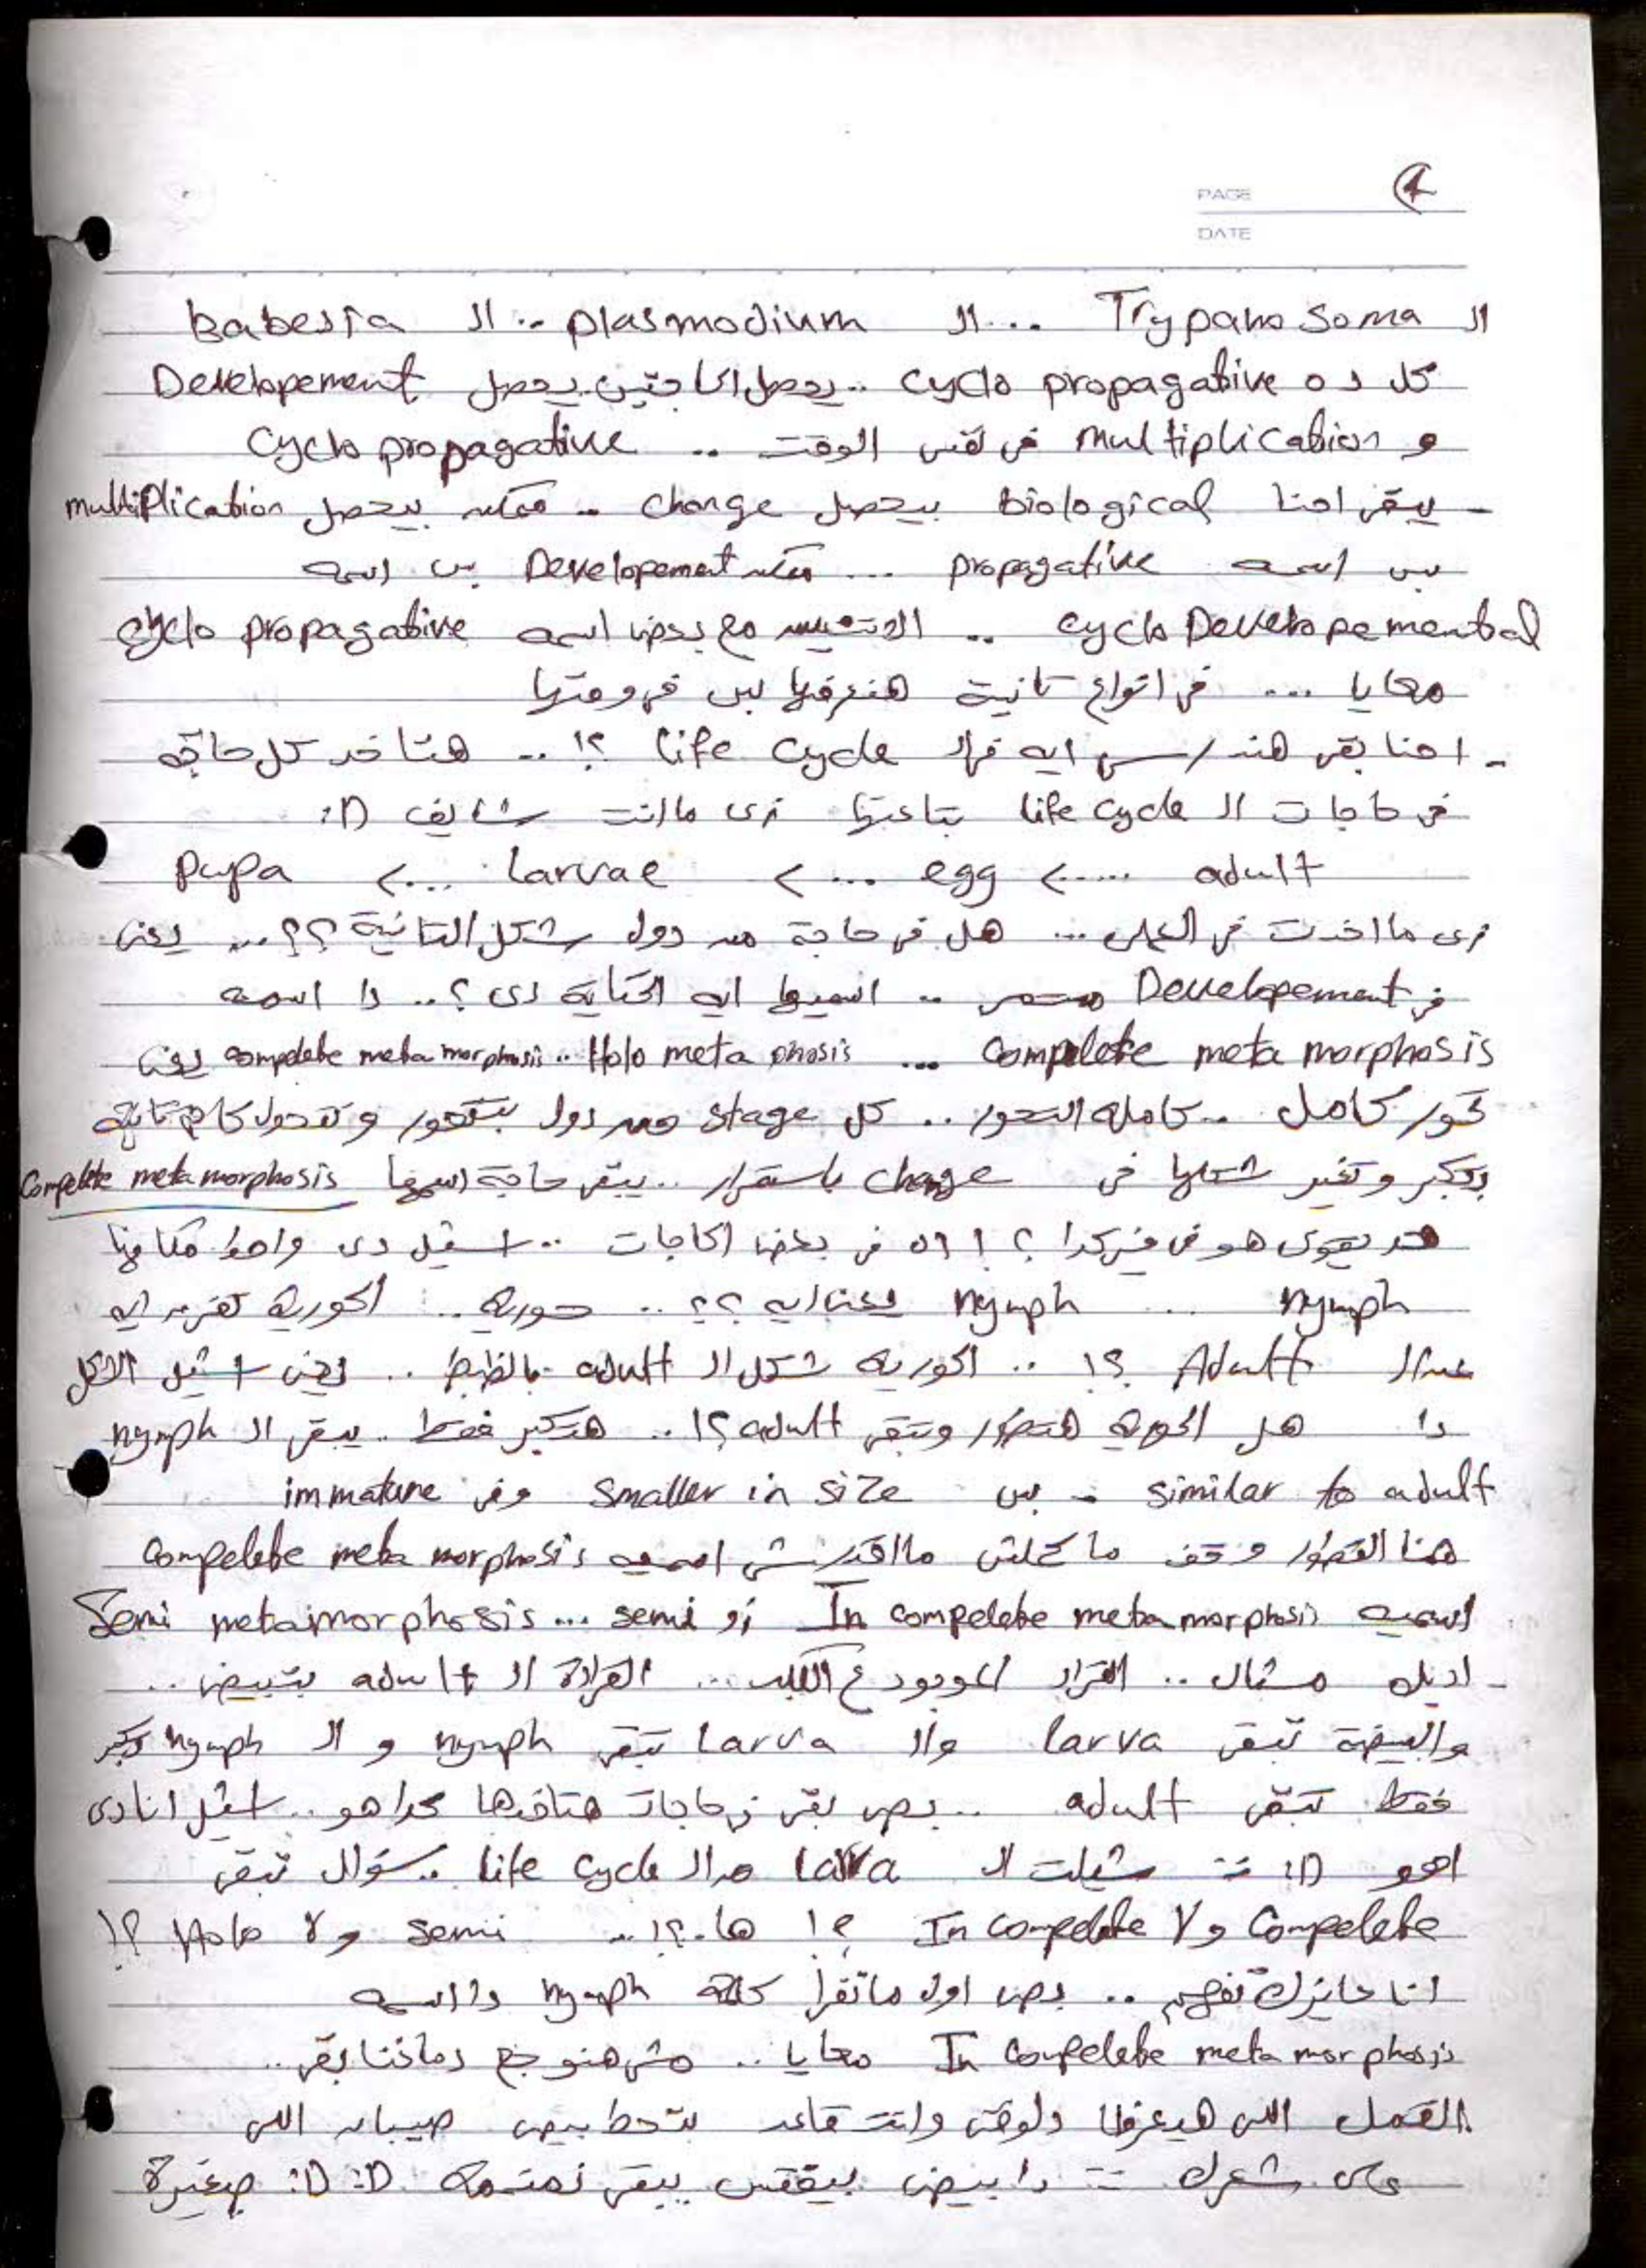 PAGE 4
DATE
ال Trypano soma ... ال plasmodium .. ال Babesia
كل ده cyclo propagative .. يحصل الحاجتين .. يحصل Developement
و multiplication في نفس الوقت .. cyclo propagative
- يبقى احنا biological بيحصل change .. ممكن بيحصل multiplication
بس اسمه propagative ... ممكن Developement بس اسمه
cyclo Developemental .. الاتنين مع بعض اسمه cyclo propagative
معايا ... في انواع تانية هنعرفها بس في وقتها
- احنا بقى هندرس ايه في ال life cycle ؟! .. هتاخد كل حاجة
في حاجات ال life cycle بتاعتها زي ما انت شايف :D
adult ....> egg ...> larvae ...> pupa
زي ما اخدت في العملي ... هل في حاجة من دول شكل التانية ؟؟ ... يعني
في Developement مستمر .. اسميها ايه الحكاية دي ؟ .. دا اسمه
compelete meta morphosis ... Holo meta phosis .. compelete meta morphosis يعني
تحور كامل .. كاملة التحور .. كل stage من دول بتتطور وتتحول كام تانية
بتكبر وتغير شكلها في change باستمرار .. يبقى حاجة اسمها Compelete meta morphosis
هو في غير كدا ؟ ! اه في بعض الحاجات .. اشيل دي واحط مكانها
nymph ... nymph يعني ايه ؟؟ .. حورية .. الحورية تفرق ايه
عن ال Adult ؟! .. الحورية شكل ال adult بالظبط .. يعني اشيل الكل
دا هل الحورية هتتطور وتبقى adult ؟! .. هتكبر فقط .. يبقى ال nymph
similar to adult - بس smaller in size وفي immature
هنا التطور وقف ما كملش ما اقدرش اسميه compelete meta morphosis
اسميه In compelete meta morphosis او semi ... Semi metamorphosis
- اديك مثال .. القراد الموجود ع الكلب ... القرادة ال adult بتبيض ..
والبيضة تبقى larva وال Larva تبقى nymph و ال nymph تكبر
فقط تبقى adult .. بص بقى في حاجات هتاخدها كدا هو .. اشيل انا دي
اهو :D شيلت ال larva من ال life cycle .. سؤال تبقى
Compelete ولا In compelete ؟! ها.؟! .. semi ولا Holo ؟!
انا عايزك تفهم .. بص اول ما تقرا كلمة nymph دا اسمه
In compelete meta morphosis معايا .. مش هنوجع دماغنا بقى ..
القمل اللي هيعرفنا دلوقتي وانت قاعد بتحط بيض صيبان اللي
على شعرك دا بيض بيفقس يبقى :D :D صغيرة